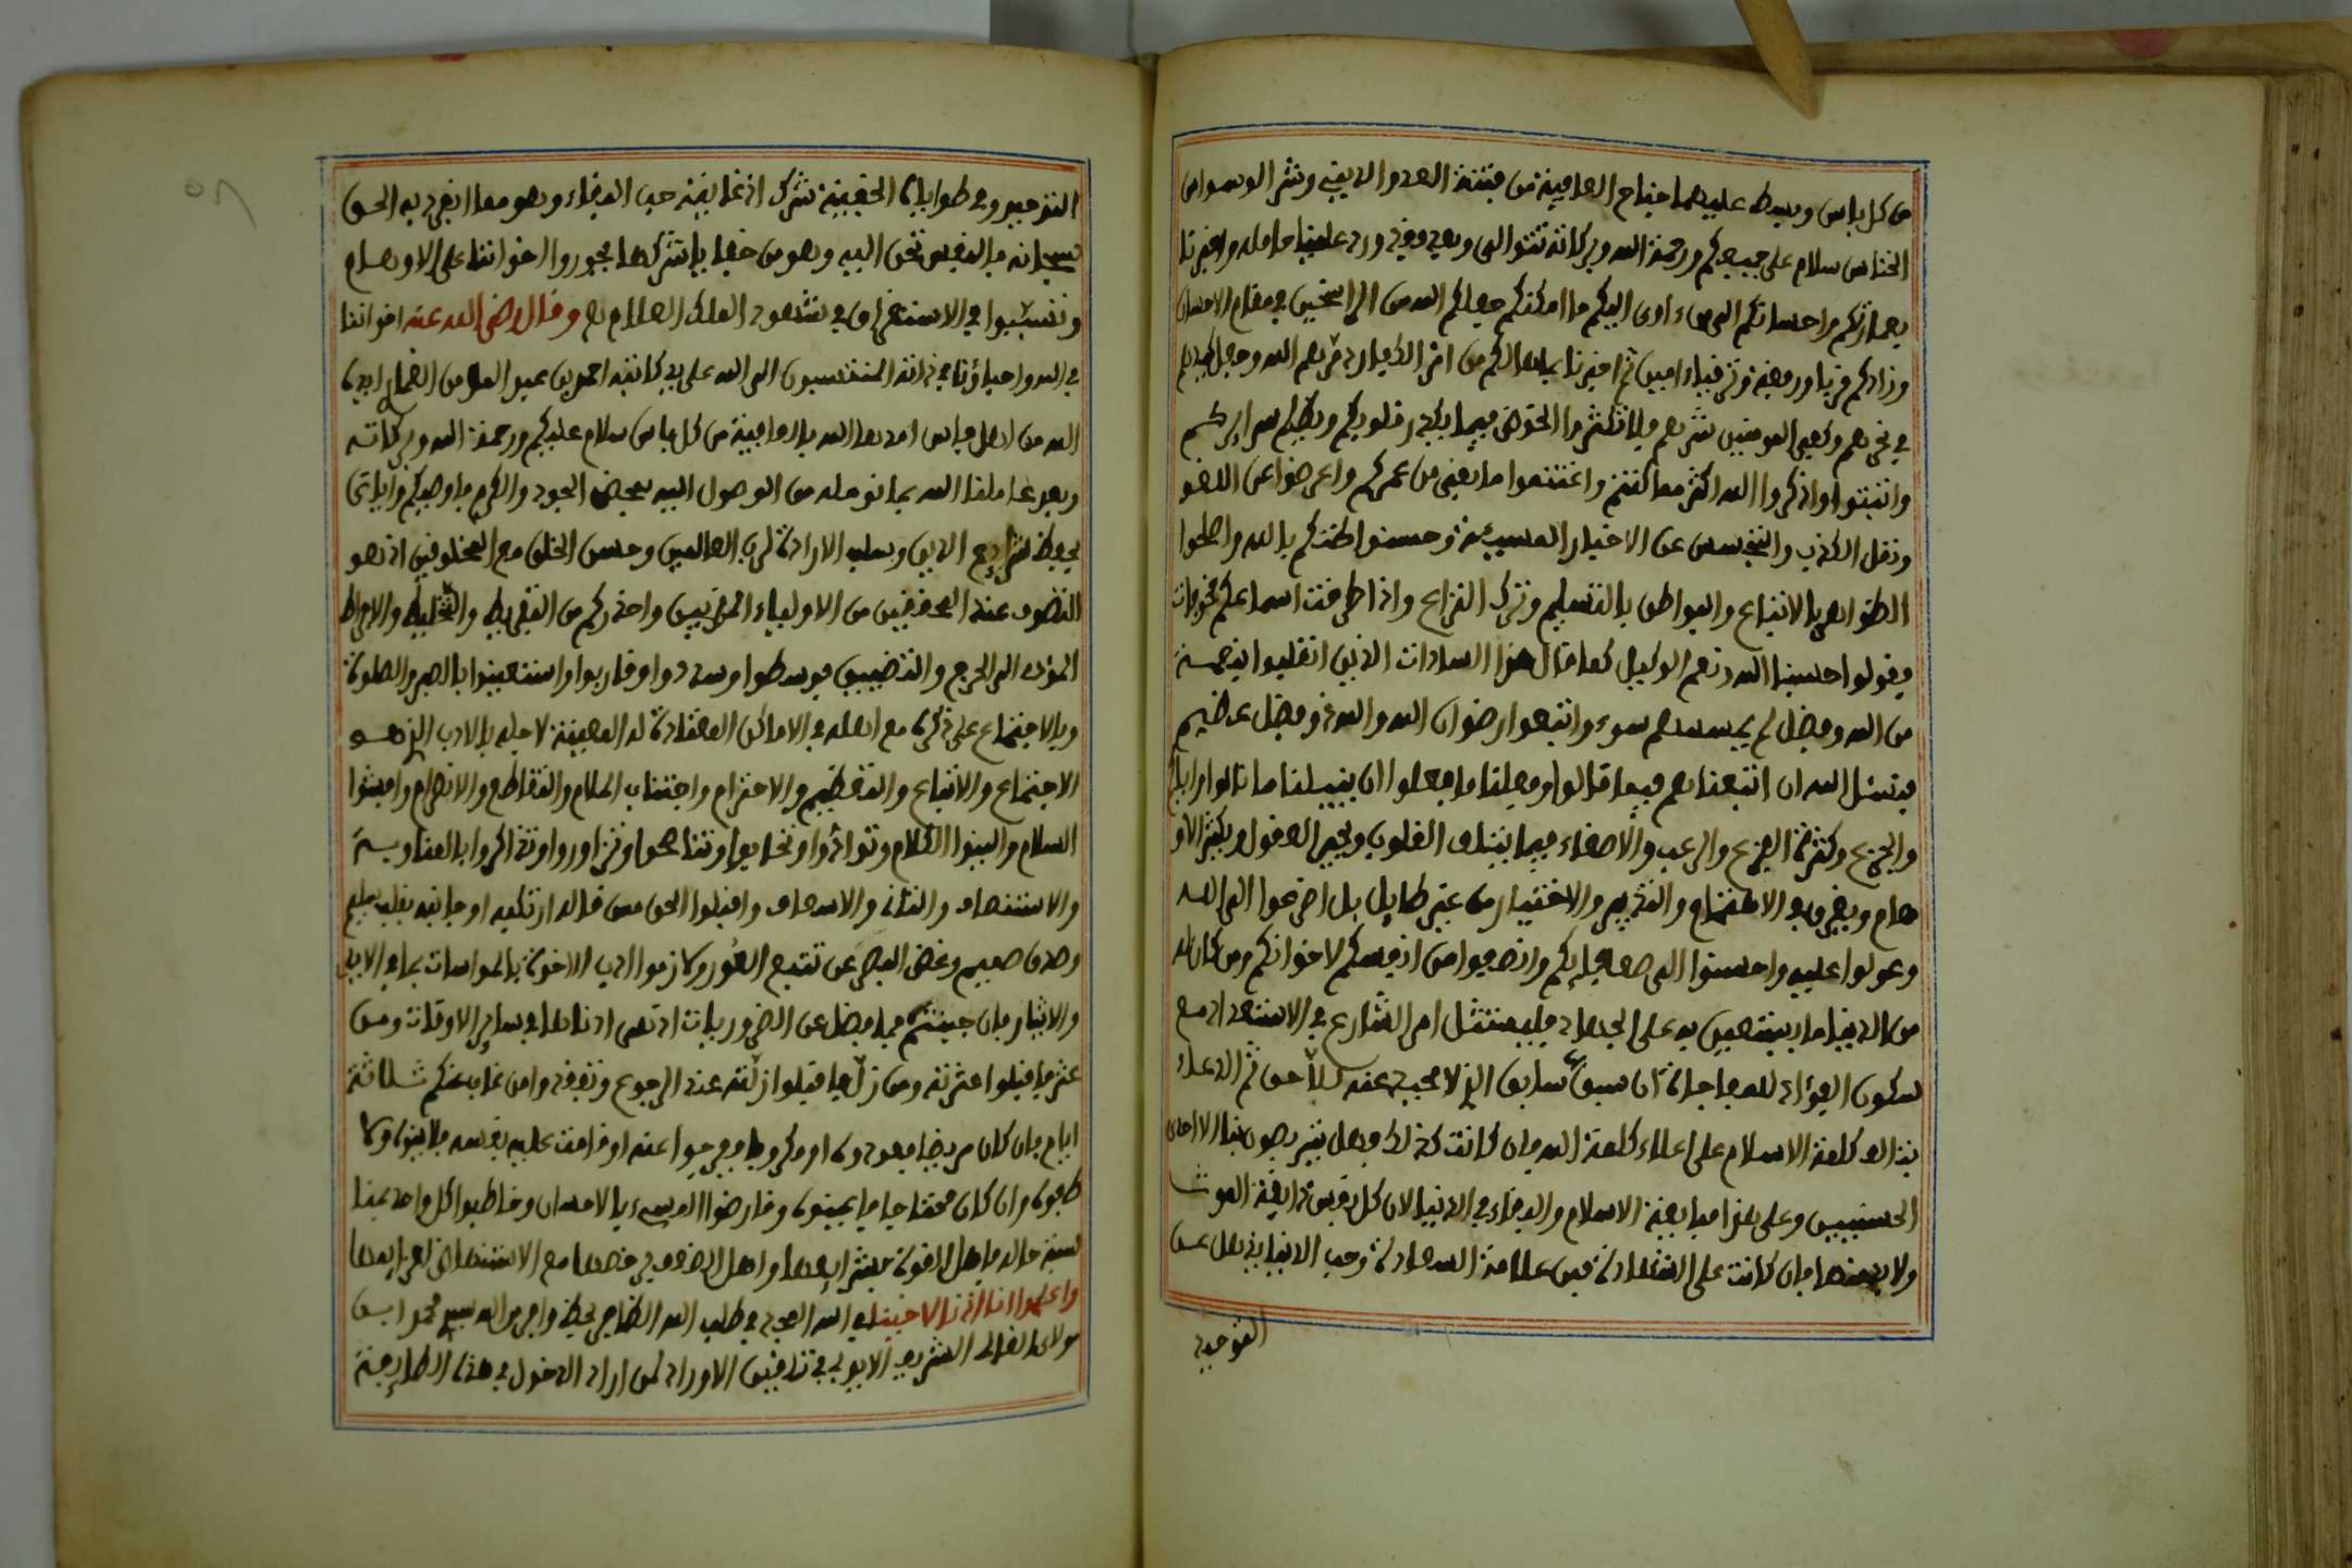 من كل باس وبسط عليهما جناح العافية من فتنة العدو الديني وشر الوسواس
الخناس سلام على جميعكم ورحمة الله وبركاته تتوالى وبعد فقد ورد علينا حامله واخبرنا
بعمارتكم واحسانكم الى من اوى اليكم ما امكنكم جعلكم الله من الراسخين في مقام الاحسان
وزادكم قربا ورفعة وترقيا امين ثم اخبرنا بما هالكم من امر الكفار دمرهم الله وجعل كيدهم
في نحرهم وكفى المومنين شرهم فلا تكثروا الخوض فيما يكدر قلوبكم ويظلم سرايركم
واثبتوا واذكروا الله اكثر مما كنتم واغتنموا ما بقي من عمركم واعرضوا عن اللغو
ونقل الكذب والتجسس عن الاخبار المسيئة وحسنوا ظنكم بالله واصلحوا
الظواهر بالاتباع والبواطن بالتسليم وترك النزاع واذا طرقت اسماعكم مخوفات
فقولوا حسبنا الله ونعم الوكيل كما قال هذا السادات الذين انقلبوا بنعمة
من الله وفضل لم يمسسهم سوء واتبعوا رضوان الله والله ذو فضل عظيم
فنسئل الله ان اتبعناهم فيما قالوا وفعلنا ما فعلوا ان ينيلنا ما نالوا واياكم
والجزع وكثرة الفزع والرعب والاصغاء فيما يتلف القلوب ويحير العقول ويكثر الاو
هام ويفرق الاهتمام والتدبير والاختيار من غير طايل بل اضرعوا الى الله
وعولوا عليه واحسنوا الى ضعفايكم وانصفوا من انفسكم لاخوانكم ومن كان له
من الدنيا ما يستعين به على الجهاد فليمتثل امر الشارع في الاستعداد مع
سكون الفؤاد للمفاجاة ان سبق سابق الذي لا محيد عنه للاحق ثم الدعاء
بنداء كلمة الاسلام على اعلاء كلمة الله فان كانت كذلك فهل تربصون بنا الا احدى
الحسنيين وعلى هذا مبايعة الاسلام والبقاء في الدنيا لان كل نفس ذايقة الموت
ولا بد منها فان كانت على الشهادة فمن علامة السعادة وحب الدنيا يذهل عن
التوحيد
التوحيد وفي طوايانا الخفية شرك اذ غايته حب البقاء وهو مما انفرد به الحق
سبحانه فالنفس تحن اليه وهو من خفايا شركها فجوروا اخواننا على الاوهام
وتفسحوا في الاستغراق في شهود الملك العلام وقال رضي الله عنه اخواننا
في الله واحباؤنا في ذاته المنتسبون الى الله على يد كاتبه احمد بن عبد المومن الغماري
الله من اهل فاس امدها الله بالعافية من كل باس سلام عليكم ورحمة الله وبركاته
وبعد عاملنا الله بما نومله من الوصول اليه بمحض الجود والكرم فاوصيكم واياي
بحفظ شرايع الدين وسلب الارادة لرب العالمين وحسن الخلق مع المخلوقين اذ هو
التصوف عند المحققين من الاولياء المقربين واحذركم من التفريط والتخليط والافراط
المؤدي الى الحرج والتضييق فوسطوا وسددوا وقاربوا واستعينوا بالصبر والصلوة
وبالاجتماع على ذكره مع اهله في الاماكن المعتادة له المعينة لاجله بالادب الذي هو
الاجتماع والاتباع والتعظيم والاحترام واجتناب الملام والتقاطع والانصرام وافشوا
السلام والينوا الكلام وتوادوا وتحابوا وتناصحوا وتزاوروا وتذاكروا بالمناوبة
والاستنصات والتأني والاسعاف واقبلوا الحق ممن قاله ارتكبه او جانبه بقلب سليم
وصدق صميم وغض البصر عن تتبع العورة ولازموا ادب الاخوة بالمواسات بما في الايدي
والايثار فان جبنتم فبما فضل عن الضروريات اذ هي ادناها في ساير الاوقات ومن
عثر فاقيلوا عثرته ومن زل فاقبلوا زلته عند الرجوع وتفقدوا من غاب عنكم ثلاثة
ايام فان كان مريضا فعودوه او مكروبا ففرجوا عنه او ضاقت عليه نفسه فلاينوه ولا
طفوه وان كان محتاجا فاعينوه وقارضوا المسيء بالاحسان وخاطبوا كل واحد بمنا
سبة حاله فاهل القوة بشرابها واهل الضعف مع الاستنهاض
واعلموا انا اذنا لاخينا في الله المجد في طلب الله الظاهر
مولاي الشريف في تلقين الاوراد لمن اراد الدخول في هذه الطايفة